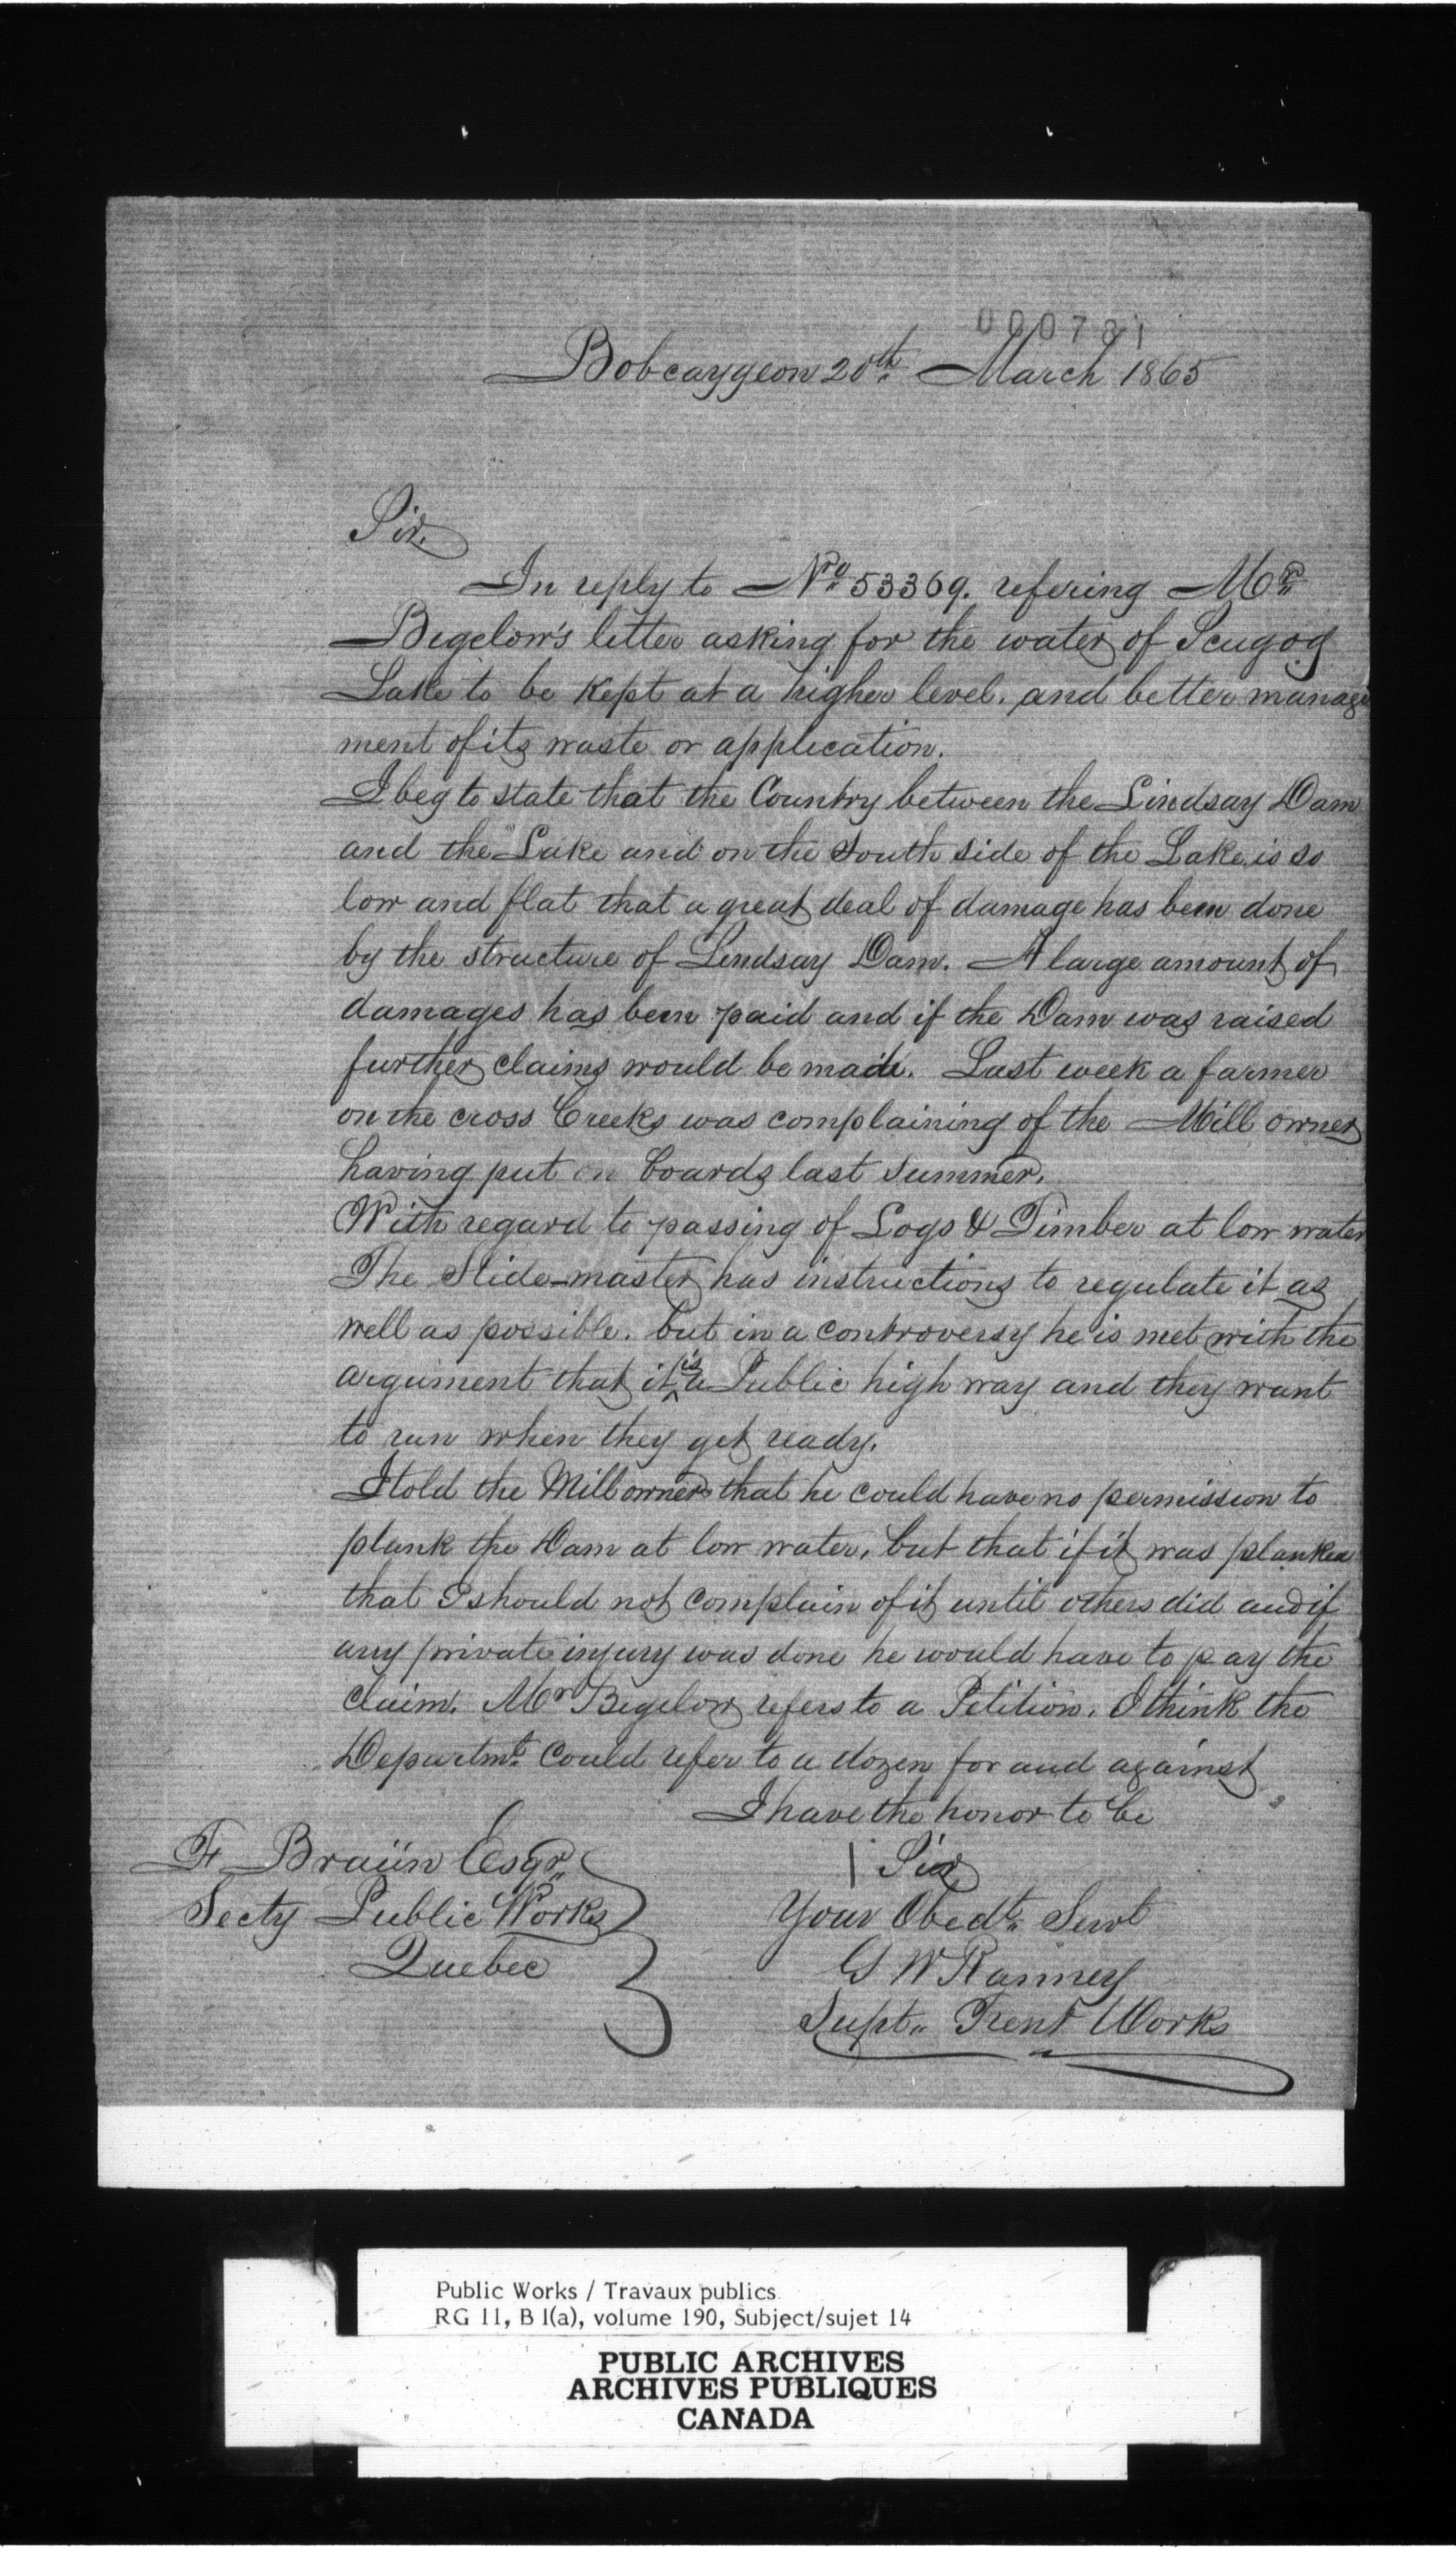 000781
Bobcaygeon 20th March 1865
Sir,
In reply to Nro 53369. refering Mr
Bigelow's letter asking for the water of Scugog
Lake to be kept at a higher level. and better manage
ment of its waste or application.
I beg to state that the Country between the Lindsay Dam
and the Lake and on the South side of the Lake is so
low and flat that a great deal of damage has been done
by the structure of Lindsay Dam. A large amount of
damages has been paid and if the Dam was raised
further claims would be made. Last week a farmer
on the cross Creeks was complaining of the Mill owner
having put on boards last summer.
With regard to passing of Logs & Timber at low water
The Slide-master has instructions to regulate it as
well as possible. but in a controversy he is met with the
argument that it is a Public high way and they want
to run when they get ready.
I told the Mill owner that he could have no permission to
plank the Dam at low water, but that if it was planked
that I should not complain of it until others did and if
any private injury was done he would have to pay the
claim. Mr Bigelow refers to a Petition. I think the
Departmt could refer to a dozen for and against
I have the honor to be
F Braün Esqr
Sir
Secty Public Works
Your Obedt Servt
Quebec
G W Ranney
Supt Trent Works
Public Works / Travaux publics
RG 11, B 1(a), volume 190, Subject/sujet 14
PUBLIC ARCHIVES
ARCHIVES PUBLIQUES
CANADA